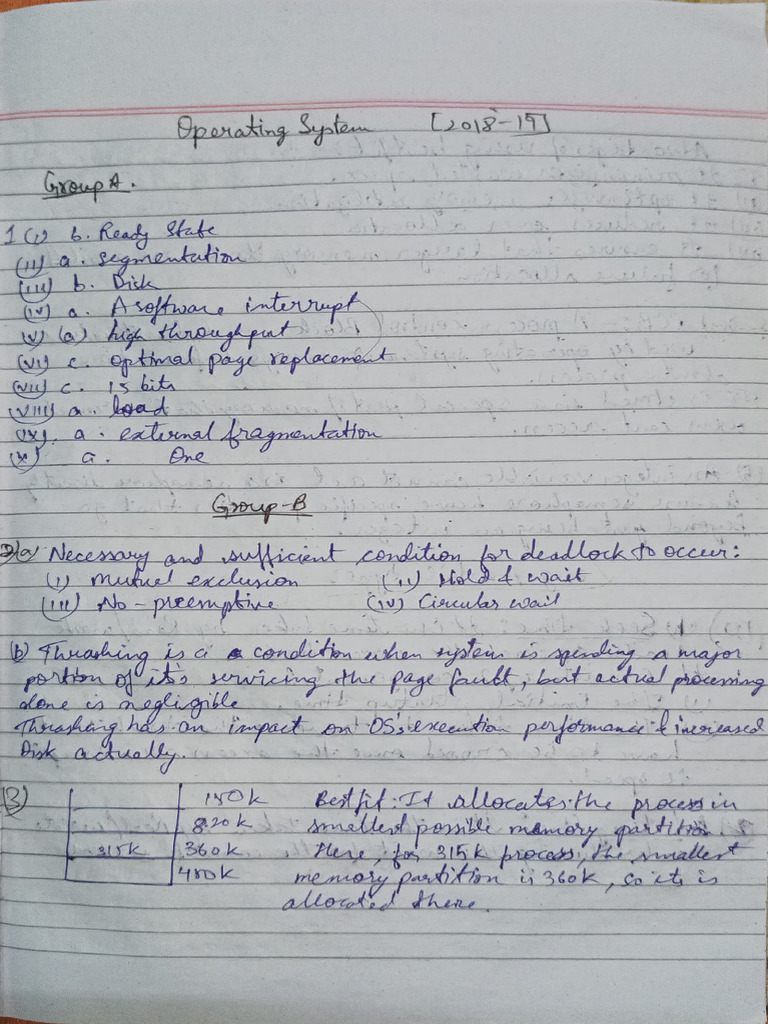 Operating System [2018-19]
Group A.
1 (i) b. Ready State
(ii) a. segmentation
(iii) b. Disk
(iv) a. A software interrupt
(v) (a) high throughput
(vi) c. optimal page replacement
(vii) c. 15 bits
(viii) a. load
(ix). a. external fragmentation
(x) a. One
Group-B
2)(a) Necessary and sufficient condition for deadlock to occur:
(i) Mutual exclusion (ii) Hold & wait
(iii) No-preemptive (iv) Circular wait
(b) Thrashing is a condition when system is spending a major
portion of it's servicing the page fault, but actual processing
done is negligible
Thrashing has an impact on OS's execution performance & increased
Disk actually.
3) 150k Best fit: It allocates the process in
820k smallest possible memory partition.
315k 360k Here, for 315k process, the smallest
450k memory partition is 360k, so it is
allocated there.